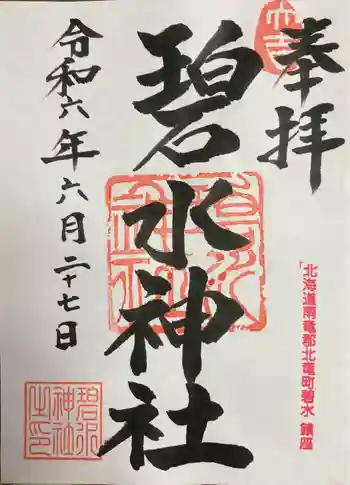 奉拝
北海道雨竜郡北竜町碧水 鎮座
碧水神社
碧水神社
令和六年六月二十七日
碧水
神社
之印